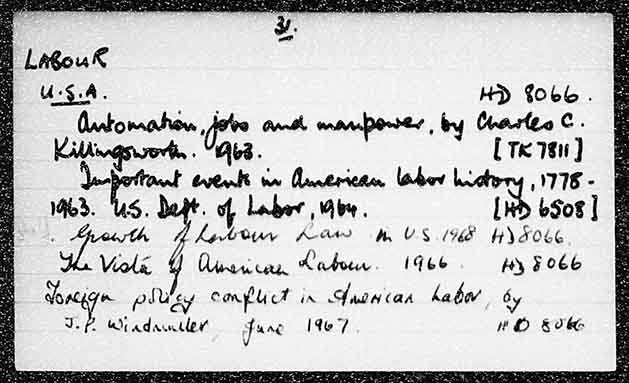 31.
LABOUR
U.S.A. HD 8066.
Automation, jobs and manpower, by Charles C.
Killingsworth. 1963. [TK 7811]
Important events in American labor history, 1778-
1963. U.S. Dept. of Labor, 1964. [HD 6508]
Growth of Labour Law in U.S. 1968 HD 8066.
The Vista of American Labour. 1966. HD 8066
Foreign policy conflict in American Labor, by
J.P. Windmuller, June 1967. HD 8066